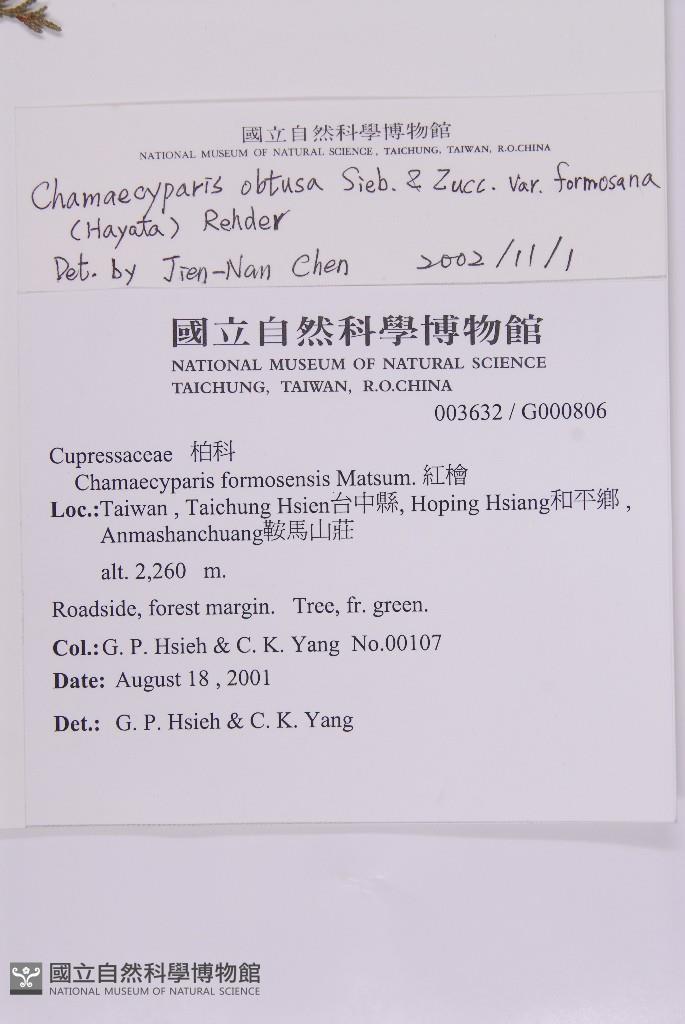 國立自然科學博物館
NATIONAL MUSEUM OF NATURAL SCIENCE, TAICHUNG, TAIWAN, R.O.CHINA
Chamaecyparis obtusa Sieb. & Zucc. var. formosana
(Hayata) Rehder
Det. by Jien-Nan Chen 2002/11/1
國立自然科學博物館
NATIONAL MUSEUM OF NATURAL SCIENCE
TAICHUNG, TAIWAN, R.O.CHINA
003632 / G000806
Cupressaceae 柏科
Chamaecyparis formosensis Matsum. 紅檜
Loc.:Taiwan , Taichung Hsien台中縣, Hoping Hsiang和平鄉 ,
Anmashanchuang鞍馬山莊
alt. 2,260 m.
Roadside, forest margin. Tree, fr. green.
Col.: G. P. Hsieh & C. K. Yang No.00107
Date: August 18 , 2001
Det.: G. P. Hsieh & C. K. Yang
國立自然科學博物館
NATIONAL MUSEUM OF NATURAL SCIENCE